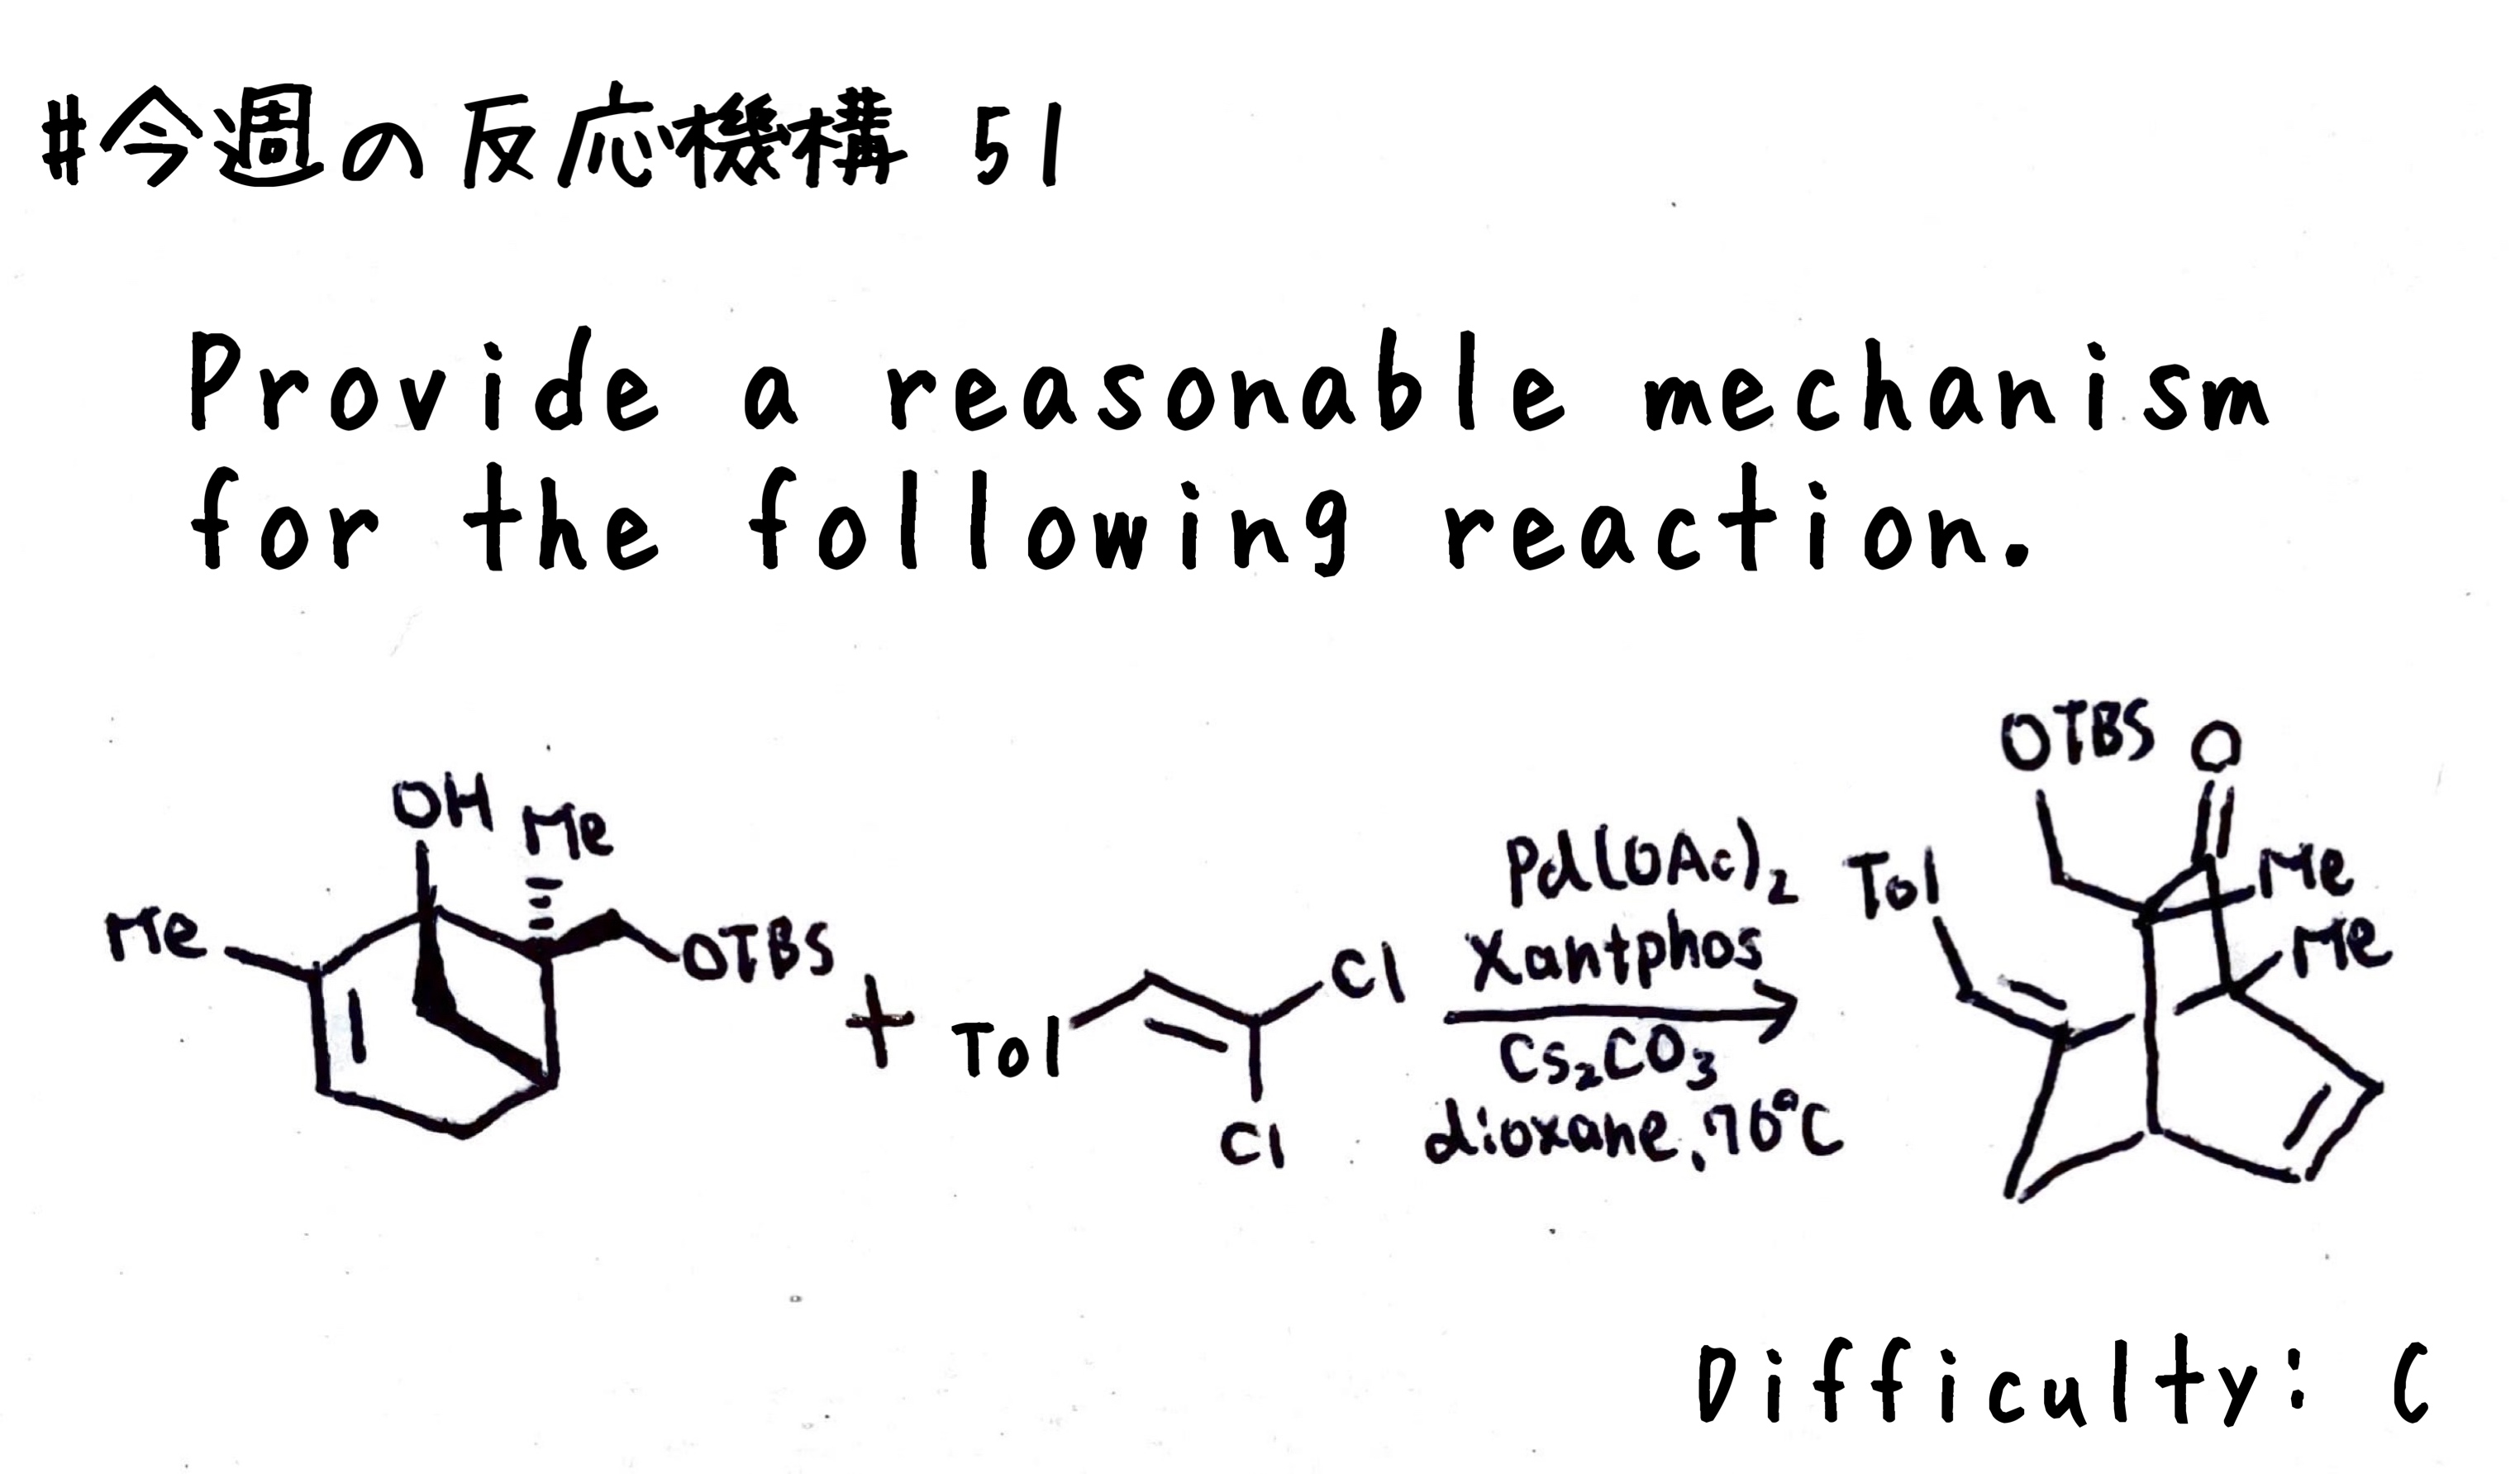 #今週の反応機構 51
Provide a reasonable mechanism
for the following reaction.
OH Me
Me
OTBS
+
Tol
Cl
Cl
Pd(OAc)2
Xantphos
Cs2CO3
dioxane, 70°C
OTBS O
Tol
Me
Me
Difficulty: C